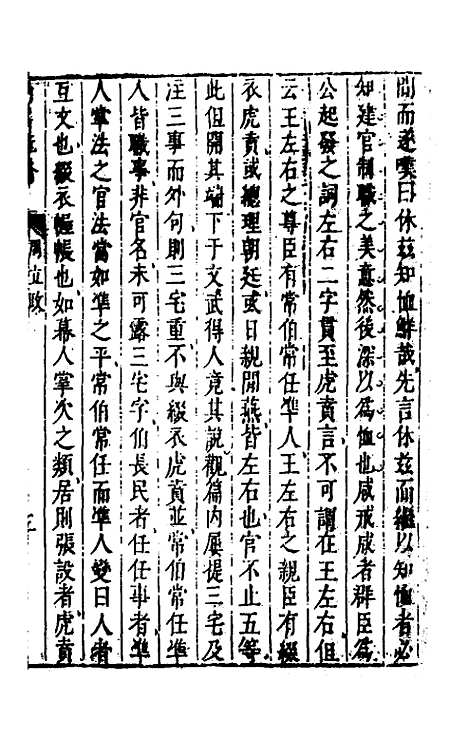 間而遂嘆曰休茲知恤鮮哉先言休茲而繼以知恤者必
知建官制職之美意然後深以爲恤也咸戒咸者群臣爲
公起發之詞左右二字貫至虎賁言不可謂在王左右但
云王左右之尊臣有常伯常任凖人王左右之親臣有綴
衣虎賁或總理朝廷或日親閒燕皆左右也官不止五等
此但開其端下于文武得人竟其說觀篇内屢提三宅及
注三事而外句則三宅重不與綴衣虎賁並常伯常任凖
人皆職事非官名未可露三宅字伯長民者任任事者凖
人掌法之官法當如凖之平常伯常任而凖人變曰人者
互文也綴衣幄帳也如幕人掌次之類居則張設者虎賁
周立政